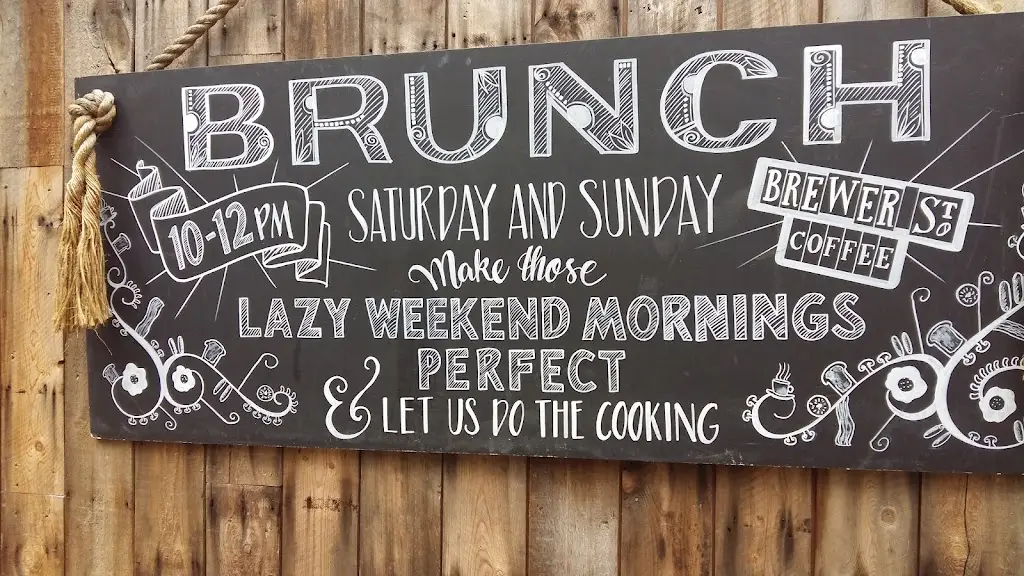 BRUNCH
10-12PM
SATURDAY AND SUNDAY
BREWER ST
COFFEE Co
Make those
LAZY WEEKEND MORNINGS
PERFECT
& LET US DO THE COOKING